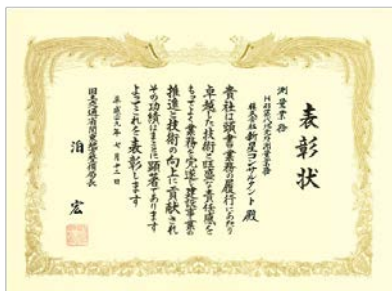 表彰状
測量業務
株式会社新星コンサルタント殿
貴社は頭書業務の履行にあたり
卓越した技術と旺盛な責任感を
もってよく業務を完遂し建設事業の
推進と技術の向上に貢献され
その功績はまことに顕著であります
よってこれを表彰します
七月十二日
国土交通省関東地方整備局長
泊宏